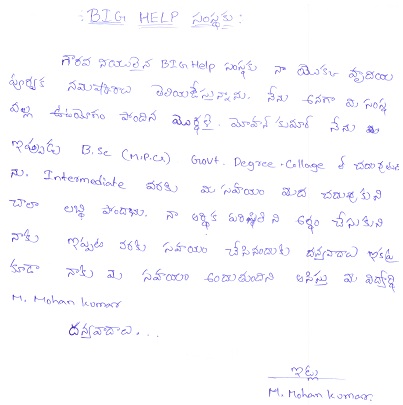 BIG HELP సంస్థకు :
గౌరవ నీయులైన BIG Help సంస్థకు నా యొక్క హృదయ
పూర్వక నమస్కారాలు తెలియజేస్తున్నాను. నేను అనగా మీ సంస్థ
వల్ల ఉపయోగం పొందిన మోహన్ కుమార్ నేను
ఇప్పుడు B.Sc (M.P.C.) Govt. Degree. Collage లో చదువుతున్నా
ను. Intermediate వరకు మీ సహాయం మీద చదువుకుని
చాలా లబ్ధి పొందాను. నా ఆర్థిక పరిస్థితి ని అర్థం చేసుకుని
నాకు ఇప్పటి వరకు సహాయం చేసినందుకు ధన్యవాదాలు ఇకపై
కూడా నాకు మీ సహాయం అందుతుందని ఆశిస్తు మీ విద్యార్థి
M. Mohan Kumar
ధన్యవాదాలు...
ఇట్లు
M. Mohan Kumar.